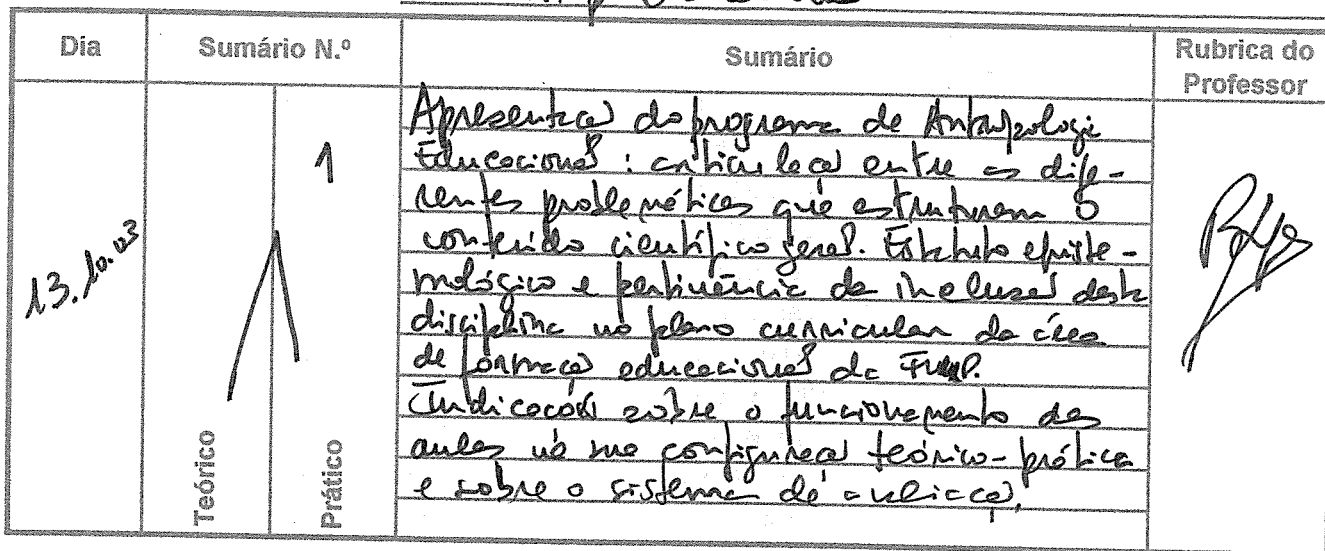 Dia Sumário N.º Sumário Rubrica do Professor
13.10.03
1
Teórico
Prático
Apresentação do programa de Antropologia
Educacional: articulação entre as dife-
rentes problemáticas que estruturam o
conteúdo científico geral. Estatuto episte-
mológico e pertinência da inclusão desta
disciplina no plano curricular da área
de formação educacional da
Indicações sobre o funcionamento das
aulas na sua configuração teórico-prática
e sobre o sistema de avaliação.